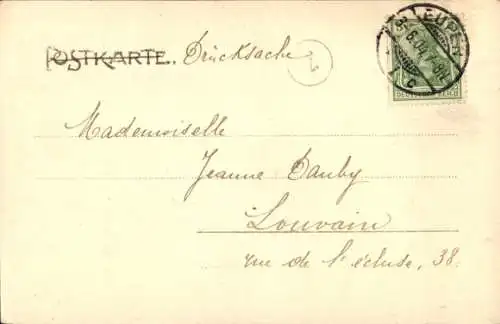 POSTKARTE. Drucksache
EUPEN
DEUTSCHES REICH
Mademoiselle
Jeanne Dauby
Louvain
rue de l'écluse, 38.